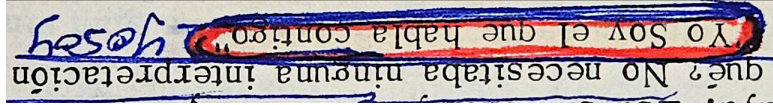 qué? No necesitaba ninguna interpretación
"Yo Soy el que habla contigo"